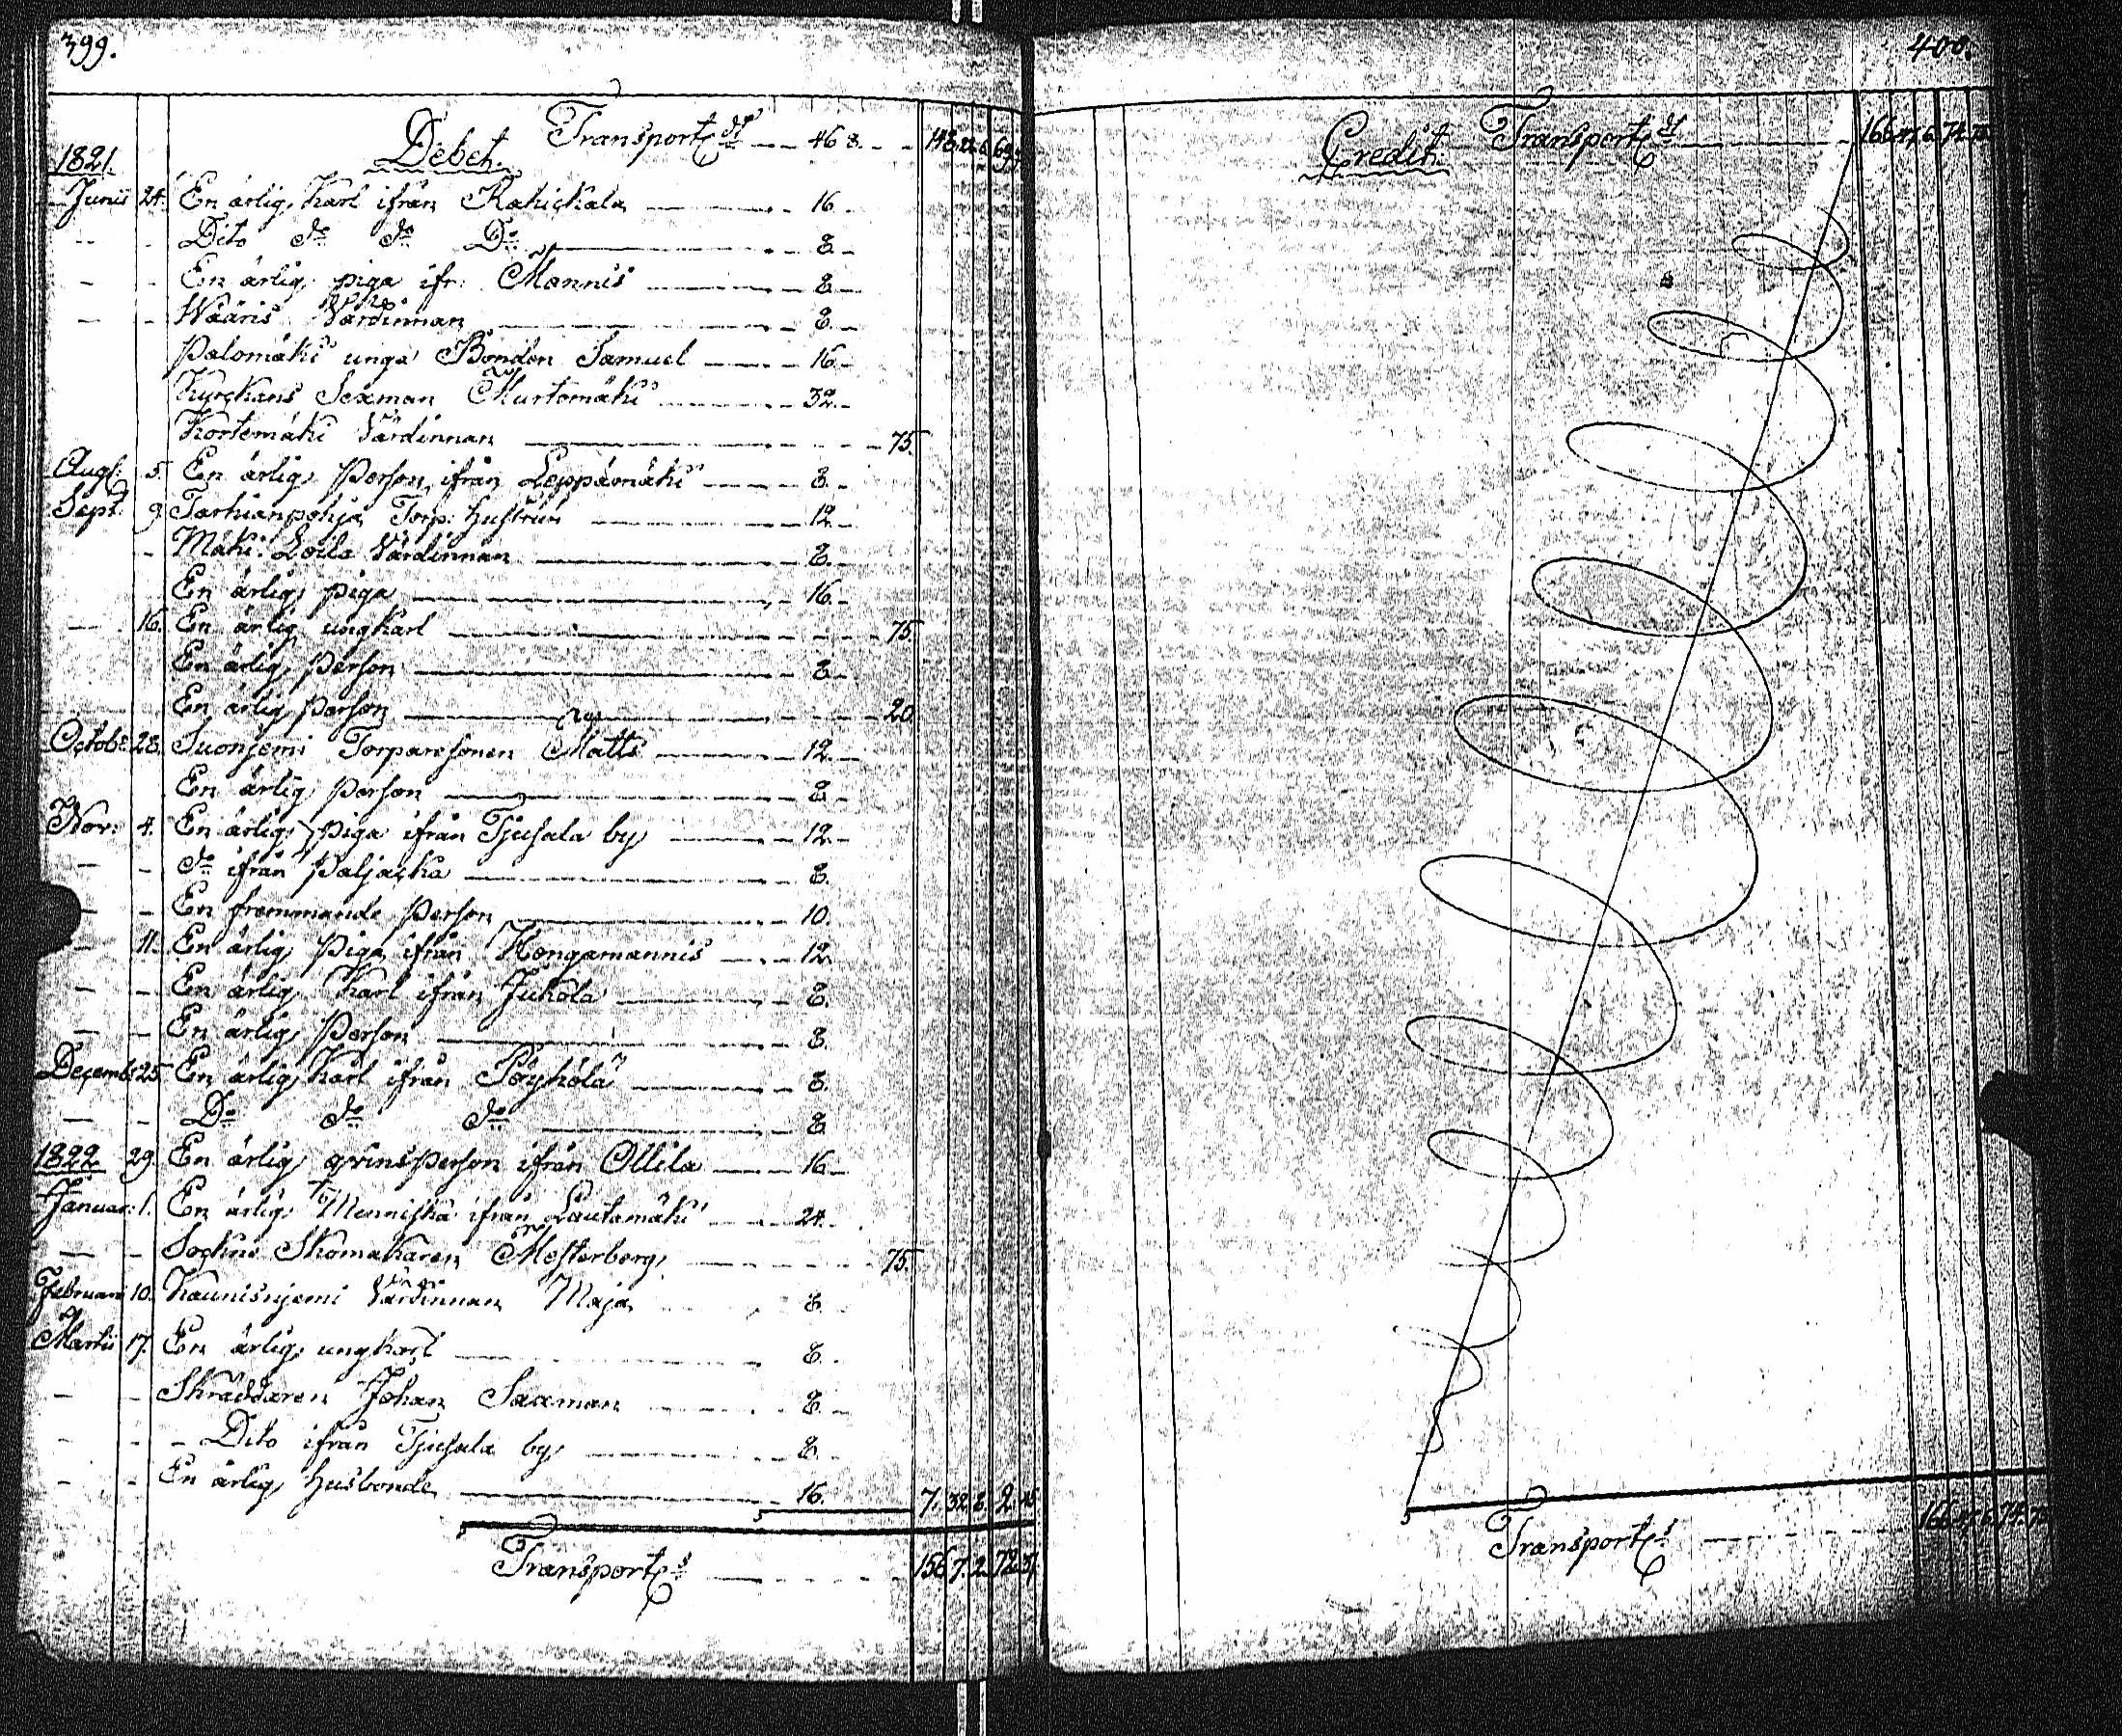 399.
Debet. Transport dt 46 8. 148. 22. 6. 69.
1821.
Junii 24. En ärlig Karl ifrån Rahickala 16.
Dito do do Do 8.
En ärlig piga ifr: Mannis 8.
Wääris Värdinnan 8.
Palomäki unga Bonden Samuel 16.
Kyrckans Sexman Murtomäki 32.
Kortemäki Värdinnan 75.
Augl: 5. En ärlig Person ifrån Leppämäki 8.
Sept: 9. Tarhianpohja Torp: hustrun 12.
Mäki: Loila Värdinnan 8.
En ärlig piga 16.
16. En ärlig ungkarl 75.
En ärlig Person 8.
En ärlig Person 20.
Octobr 28. Suonjemi Torparesonen Matts 12.
En ärlig Person 8.
Nov: 4. En ärlig piga ifrån Tjusala by 12.
do ifrån Paljacka 8.
En fremmande Person 10.
11. En ärlig Piga ifrån Kongamannis 12.
En ärlig Karl ifrån Juhola 8.
En ärlig Person 8.
Decemb: 25. En ärlig Karl ifrån Pöyhölä 8.
Do do do 8.
1822. 29. En ärlig qvinsPerson ifrån Ollila 16.
Januar: 1. En ärlig Menniska ifrån Lautamäki 24.
Sockne Skomakaren Mesterberg 75.
Februari 10. Kaunisnjemi Värdinnan Maja 8.
Martii 17. En ärlig ungkarl 8.
Skräddaren Johan Saxman 8.
Dito ifrån Tjusala by 8.
En ärlig husbonde 16. 7. 32. 8. 2. 45
Transport s 156. 7. 2. 72. 37.
400.
Credit Transport dt 166. 47. 6. 74.
Transport s 166. 47. 6. 74.